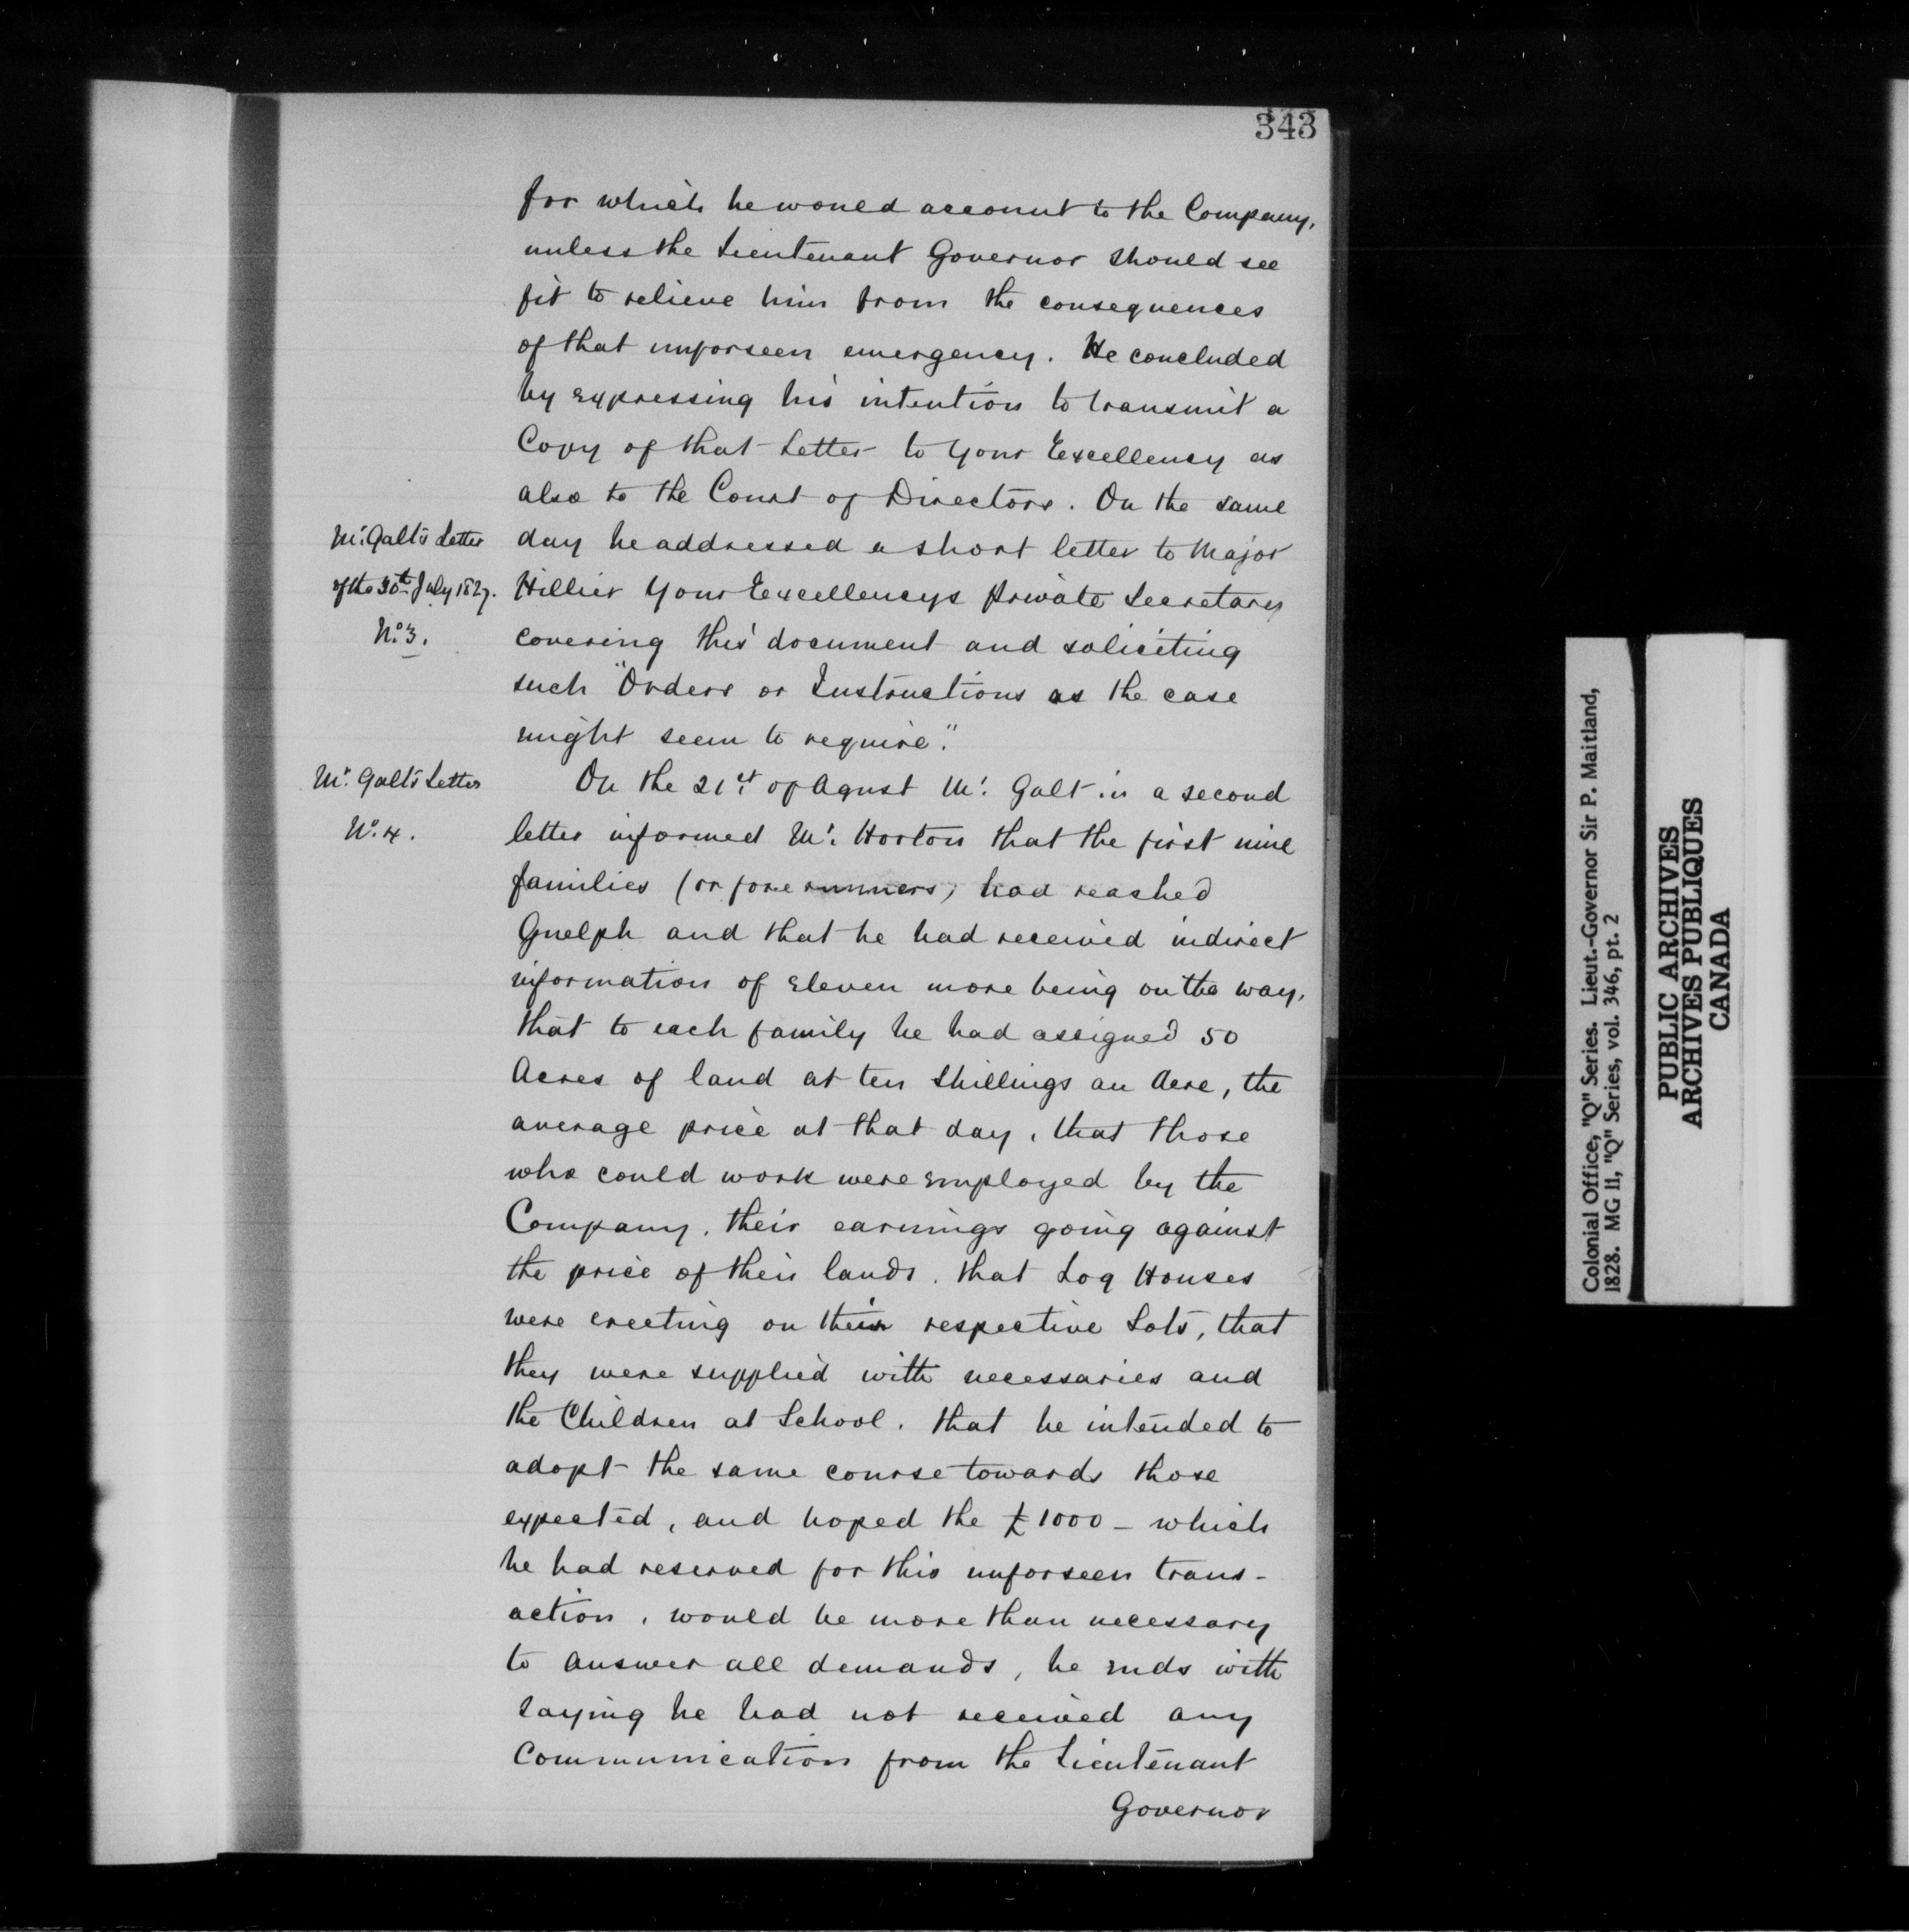 343
for which he would account to the Company,
unless the Lieutenant Governor should see
fit to relieve him from the consequences
of that unforseen emergency. He concluded
by expressing his intention to transmit a
Copy of that Letter to Your Excellency as
also to the Court of Directors. On the same
Mr. Galt's Letter
of the 30th July 1827.
No. 3.
day he addressed a short letter to Major
Hillier Your Excellencys Private Secretary
covering this document and soliciting
such "Orders or Instructions as the case
might seem to require."
Mr. Galt's Letter
No. 4.
On the 21st of Agust Mr. Galt in a second
letter informed Mr. Horton that the first nine
families (or fore runners) had reached
Guelph and that he had received indirect
information of eleven more being on the way,
that to each family he had assigned 50
Acres of land at ten Shillings an Acre, the
average price at that day, that those
who could work were employed by the
Company, their earnings going against
the price of their lands, that Log Houses
were erecting on their respective Lots, that
they were supplied with necessaries and
the Children at School. that he intended to
adopt the same course towards those
expected, and hoped the £1000 - which
he had reserved for this unforseen trans-
action, would be more than necessary
to answer all demands, he ends with
saying he had not received any
Communication from the Lieutenant
Governor
Colonial Office, "Q" Series. Lieut.-Governor Sir P. Maitland,
1828. MG 11, "Q" Series, vol. 346, pt. 2
PUBLIC ARCHIVES
ARCHIVES PUBLIQUES
CANADA